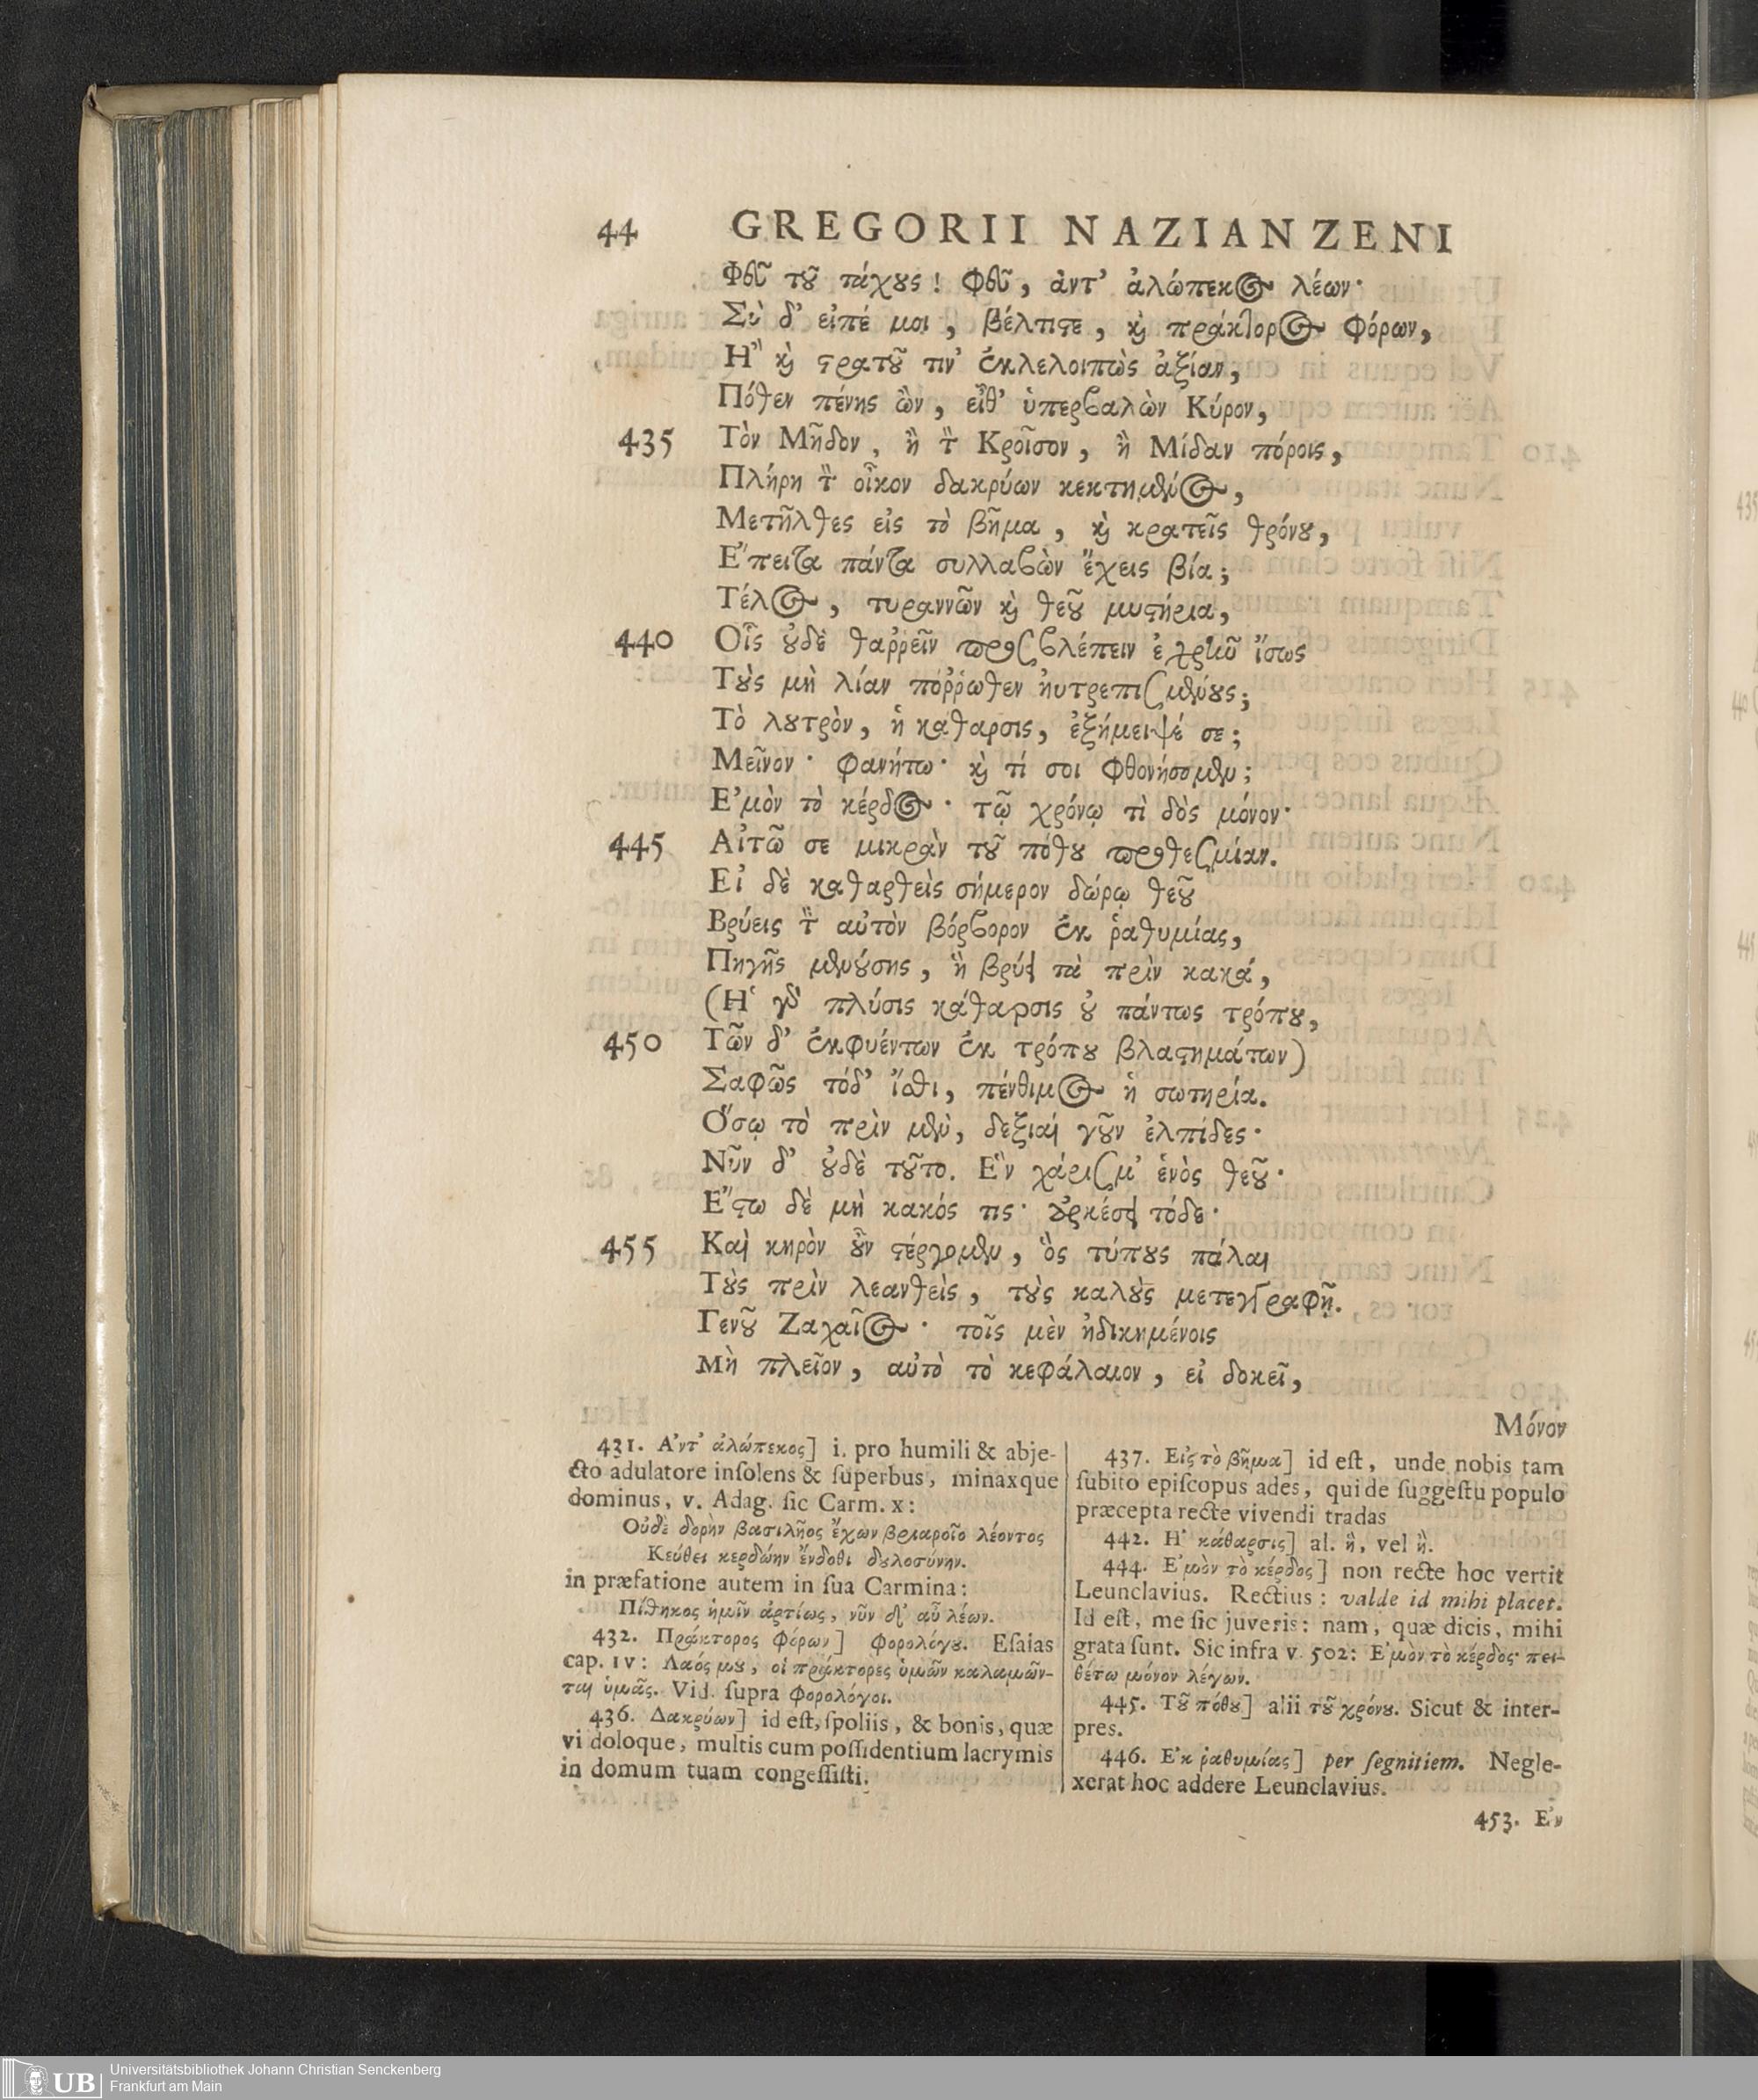 44 GREGORII NAZIANZENI
Φεῦ τοῦ τάχους! Φεῦ, ἀντ' ἀλώπεκος λέων·
Σὺ δ' εἰπέ μοι, βέλτιστε, καὶ πράκτορος φόρων,
Ἢ καὶ στρατοῦ τιν' ἐκλελοιπὼς ἀξίαν,
Πόθεν πένης ὢν, εἶθ' ὑπερβαλὼν Κύρον,
435 Τὸν Μῆδον, ἢ τὸν Κροῖσον, ἢ Μίδαν πόροις,
Πλήρη τὸν οἶκον δακρύων κεκτημένος,
Μετῆλθες εἰς τὸ βῆμα, καὶ κρατεῖς θρόνου,
Ἔπειτα πάντα συλλαβὼν ἔχεις βία;
Τέλος, τυραννῶν καὶ θεοῦ μυστήρια,
440 Οἷς οὐδὲ θαῤῥεῖν προσβλέπειν ἐχρῆν ἴσως
Τοὺς μὴ λίαν πόῤῥωθεν ηὐτρεπισμένους;
Τὸ λουτρὸν, ἡ κάθαρσις, ἐξήμειψέ σε;
Μεῖνον· φανήτω· καὶ τί σοι φθονήσομεν;
Ἐμὸν τὸ κέρδος· τῷ χρόνῳ τὶ δὸς μόνον·
445 Αἰτῶ σε μικρὰν τοῦ πόθου προθεσμίαν.
Εἰ δὲ καθαρθεὶς σήμερον δώρῳ θεοῦ
Βρύεις τὸν αὐτὸν βόρβορον ἐκ ῥαθυμίας,
Πηγῆς μενούσης, ἣ βρύει τὰ πρὶν κακά,
(Ἡ γὰρ πλύσις κάθαρσις οὐ πάντως τρόπου,
450 Τῶν δ' ἐκφυέντων ἐκ τρόπου βλαστημάτων)
Σαφῶς τόδ' ἴσθι, πένθιμος ἡ σωτηρία.
Ὅσῳ τὸ πρὶν μὲν, δεξιαὶ γοῦν ἐλπίδες·
Νῦν δ' οὐδὲ τοῦτο. Ἓν χάρισμ' ἑνὸς θεοῦ·
Ἔστω δὲ μὴ κακός τις· ἀρκέσει τόδε·
455 Καὶ κηρὸν οὖν στέργομεν, ὃς τύπους πάλαι
Τοὺς πρὶν λεανθεὶς, τοὺς καλοὺς μετεγγραφῇ.
Γενοῦ Ζαχαῖος· τοῖς μὲν ἠδικημένοις
Μὴ πλεῖον, αὐτὸ τὸ κεφάλαιον, εἰ δοκεῖ,
Μόνον
431. Ἀντ' ἀλώπεκος] i. pro humili & abje-
cto adulatore insolens & superbus, minaxque
dominus, v. Adag. sic Carm. x:
Οὐδὲ δορὴν βασιλῆος ἔχων βριαροῖο λέοντος
Κεύθει κερδώην ἔνδοθι δουλοσύνην.
in præfatione autem in sua Carmina:
Πίθηκος ἡμῖν ἀρτίως, νῦν δ' αὖ λέων.
432. Πράκτορος φόρων] φορολόγου. Esaias
cap. IV: Λαός μου, οἱ πράκτορες ὑμῶν καλαμῶν-
ται ὑμᾶς. Vid. supra φορολόγοι.
436. Δακρύων] id est, spoliis, & bonis, quæ
vi doloque, multis cum possidentium lacrymis
in domum tuam congessisti.
437. Εἰς τὸ βῆμα] id est, unde nobis tam
subito episcopus ades, qui de suggestu populo
præcepta recte vivendi tradas
442. Ἡ κάθαρσις] al. ἢ, vel ἣ.
444. Ἐμὸν τὸ κέρδος] non recte hoc vertit
Leunclavius. Rectius: valde id mihi placet.
Id est, me sic juveris: nam, quæ dicis, mihi
grata sunt. Sic infra v. 502: Ἐμὸν τὸ κέρδος· πει-
θέτω μόνον λέγων.
445. Τοῦ πόθου] alii τοῦ χρόνου. Sicut & inter-
pres.
446. Ἐκ ῥαθυμίας] per segnitiem. Negle-
xerat hoc addere Leunclavius.
453. Ἐν
UB Universitätsbibliothek Johann Christian Senckenberg
Frankfurt am Main